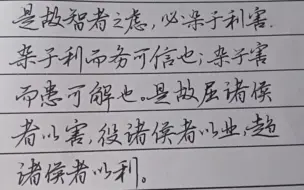 是故智者之虑,必杂于利害.
杂于利而务可信也;杂于害
而患可解也。是故屈诸侯
者以害,役诸侯者以业,趋
诸侯者以利。